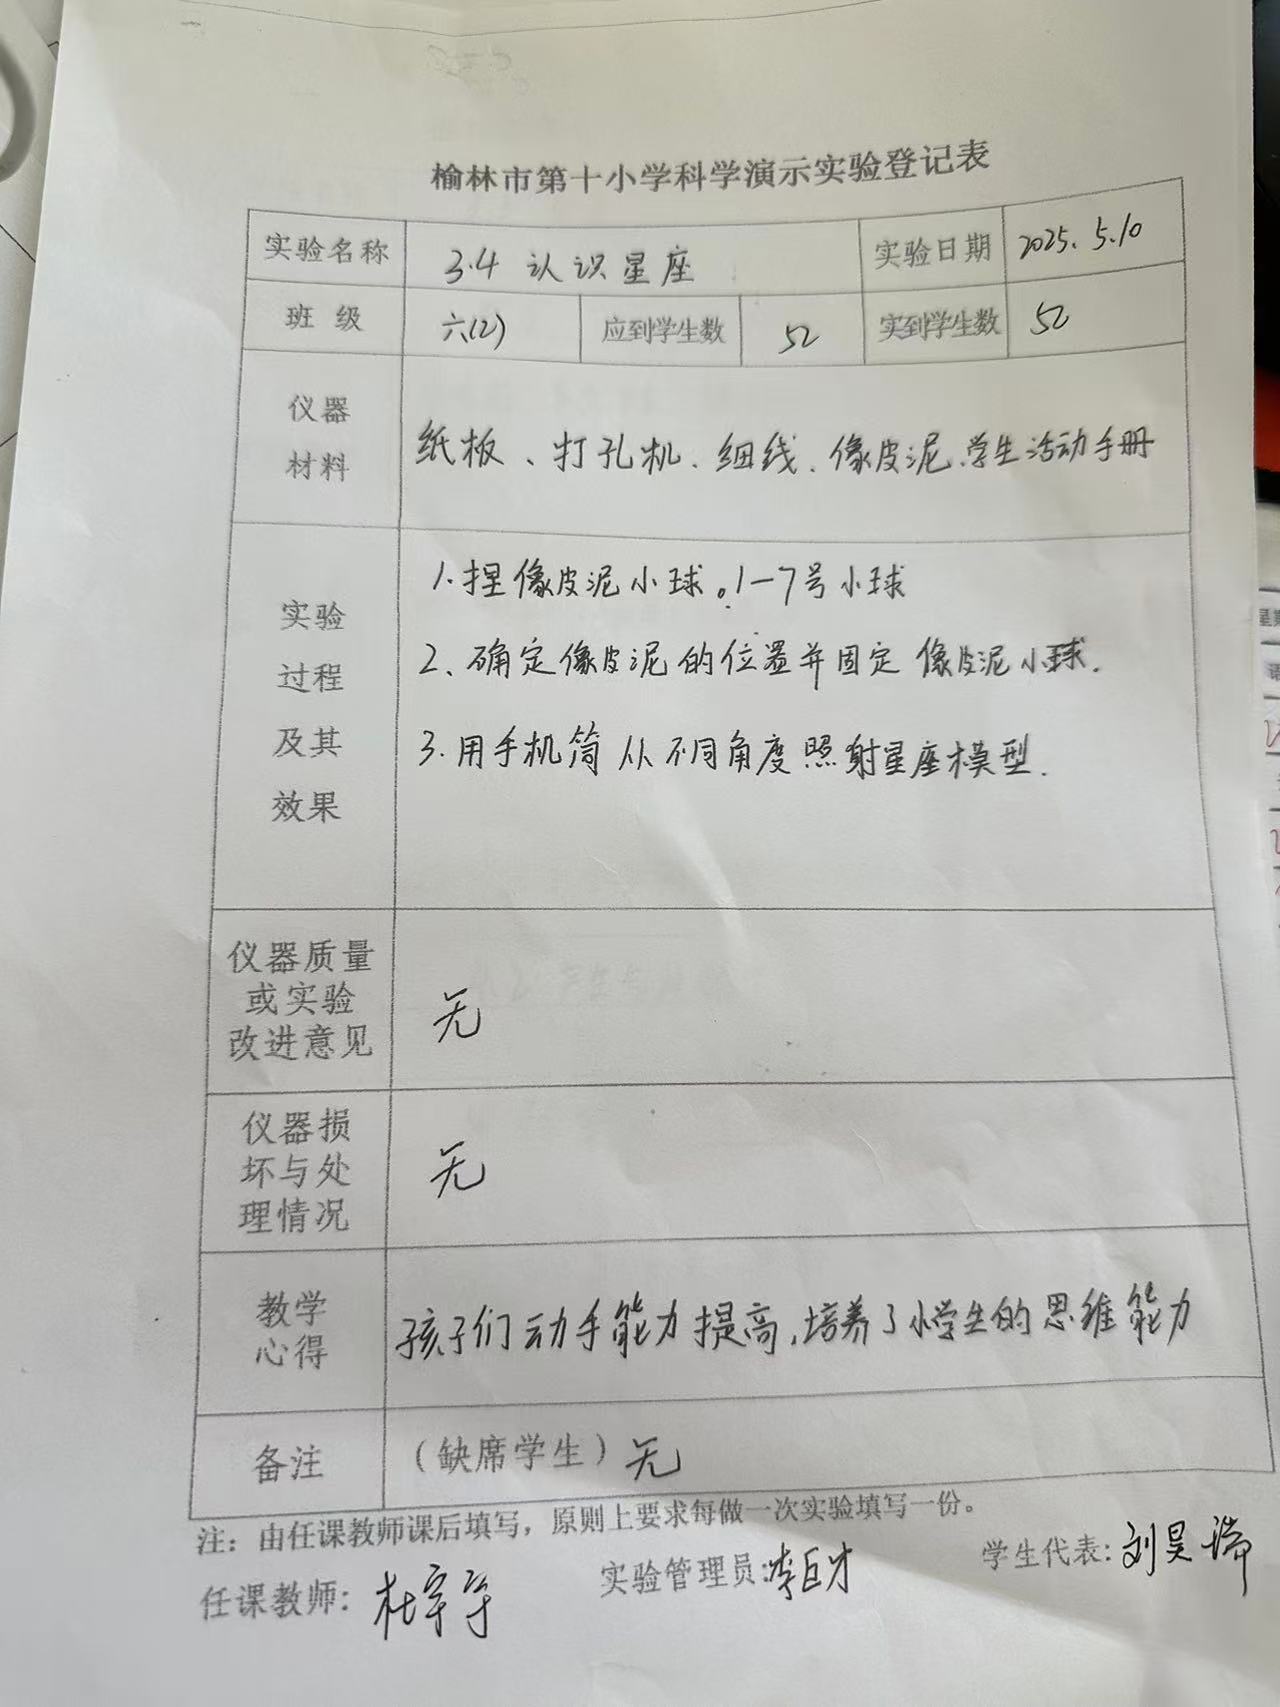 榆林市第十小学科学演示实验登记表
实验名称 3.4 认识星座 实验日期 2025.5.10
班 级 六(2) 应到学生数 52 实到学生数 52
仪器
材料
纸板、打孔机、细线、像皮泥、学生活动手册
实验
过程
及其
效果
1.捏像皮泥小球。1—7号小球
2、确定像皮泥的位置并固定像皮泥小球.
3.用手机筒从不同角度照射星座模型.
仪器质量
或实验
改进意见
无
仪器损
坏与处
理情况
无
教学
心得
孩子们动手能力提高,培养了小学生的思维能力
备注 (缺席学生) 无
注：由任课教师课后填写，原则上要求每做一次实验填写一份。
任课教师: 杜宇宁 实验管理员: 李巨才 学生代表: 刘昊